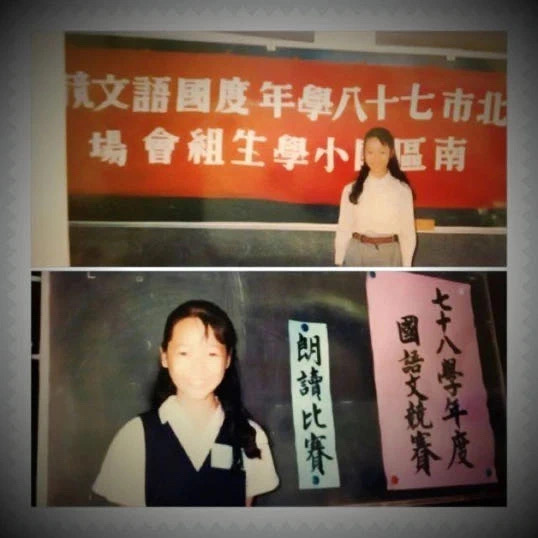 北市七十八學年度國語文競
南區國小學生組會場
七十八學年度
國語文競賽
朗讀比賽